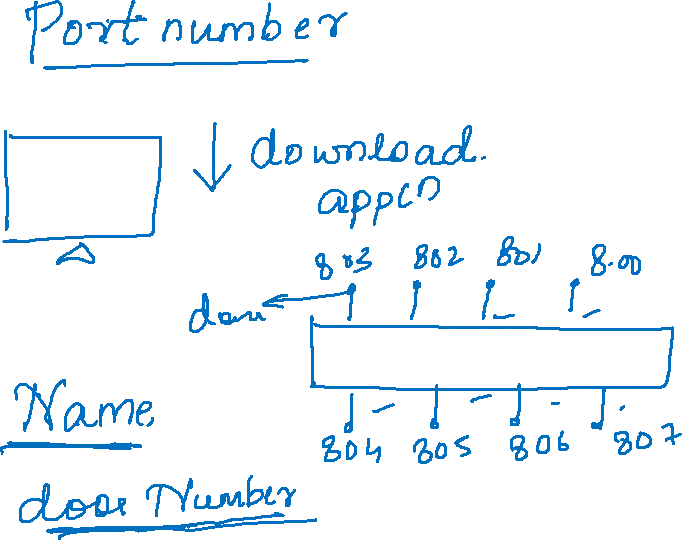 Port number
download.
app()
803 802 801 800
Name
804 805 806 807
door Number